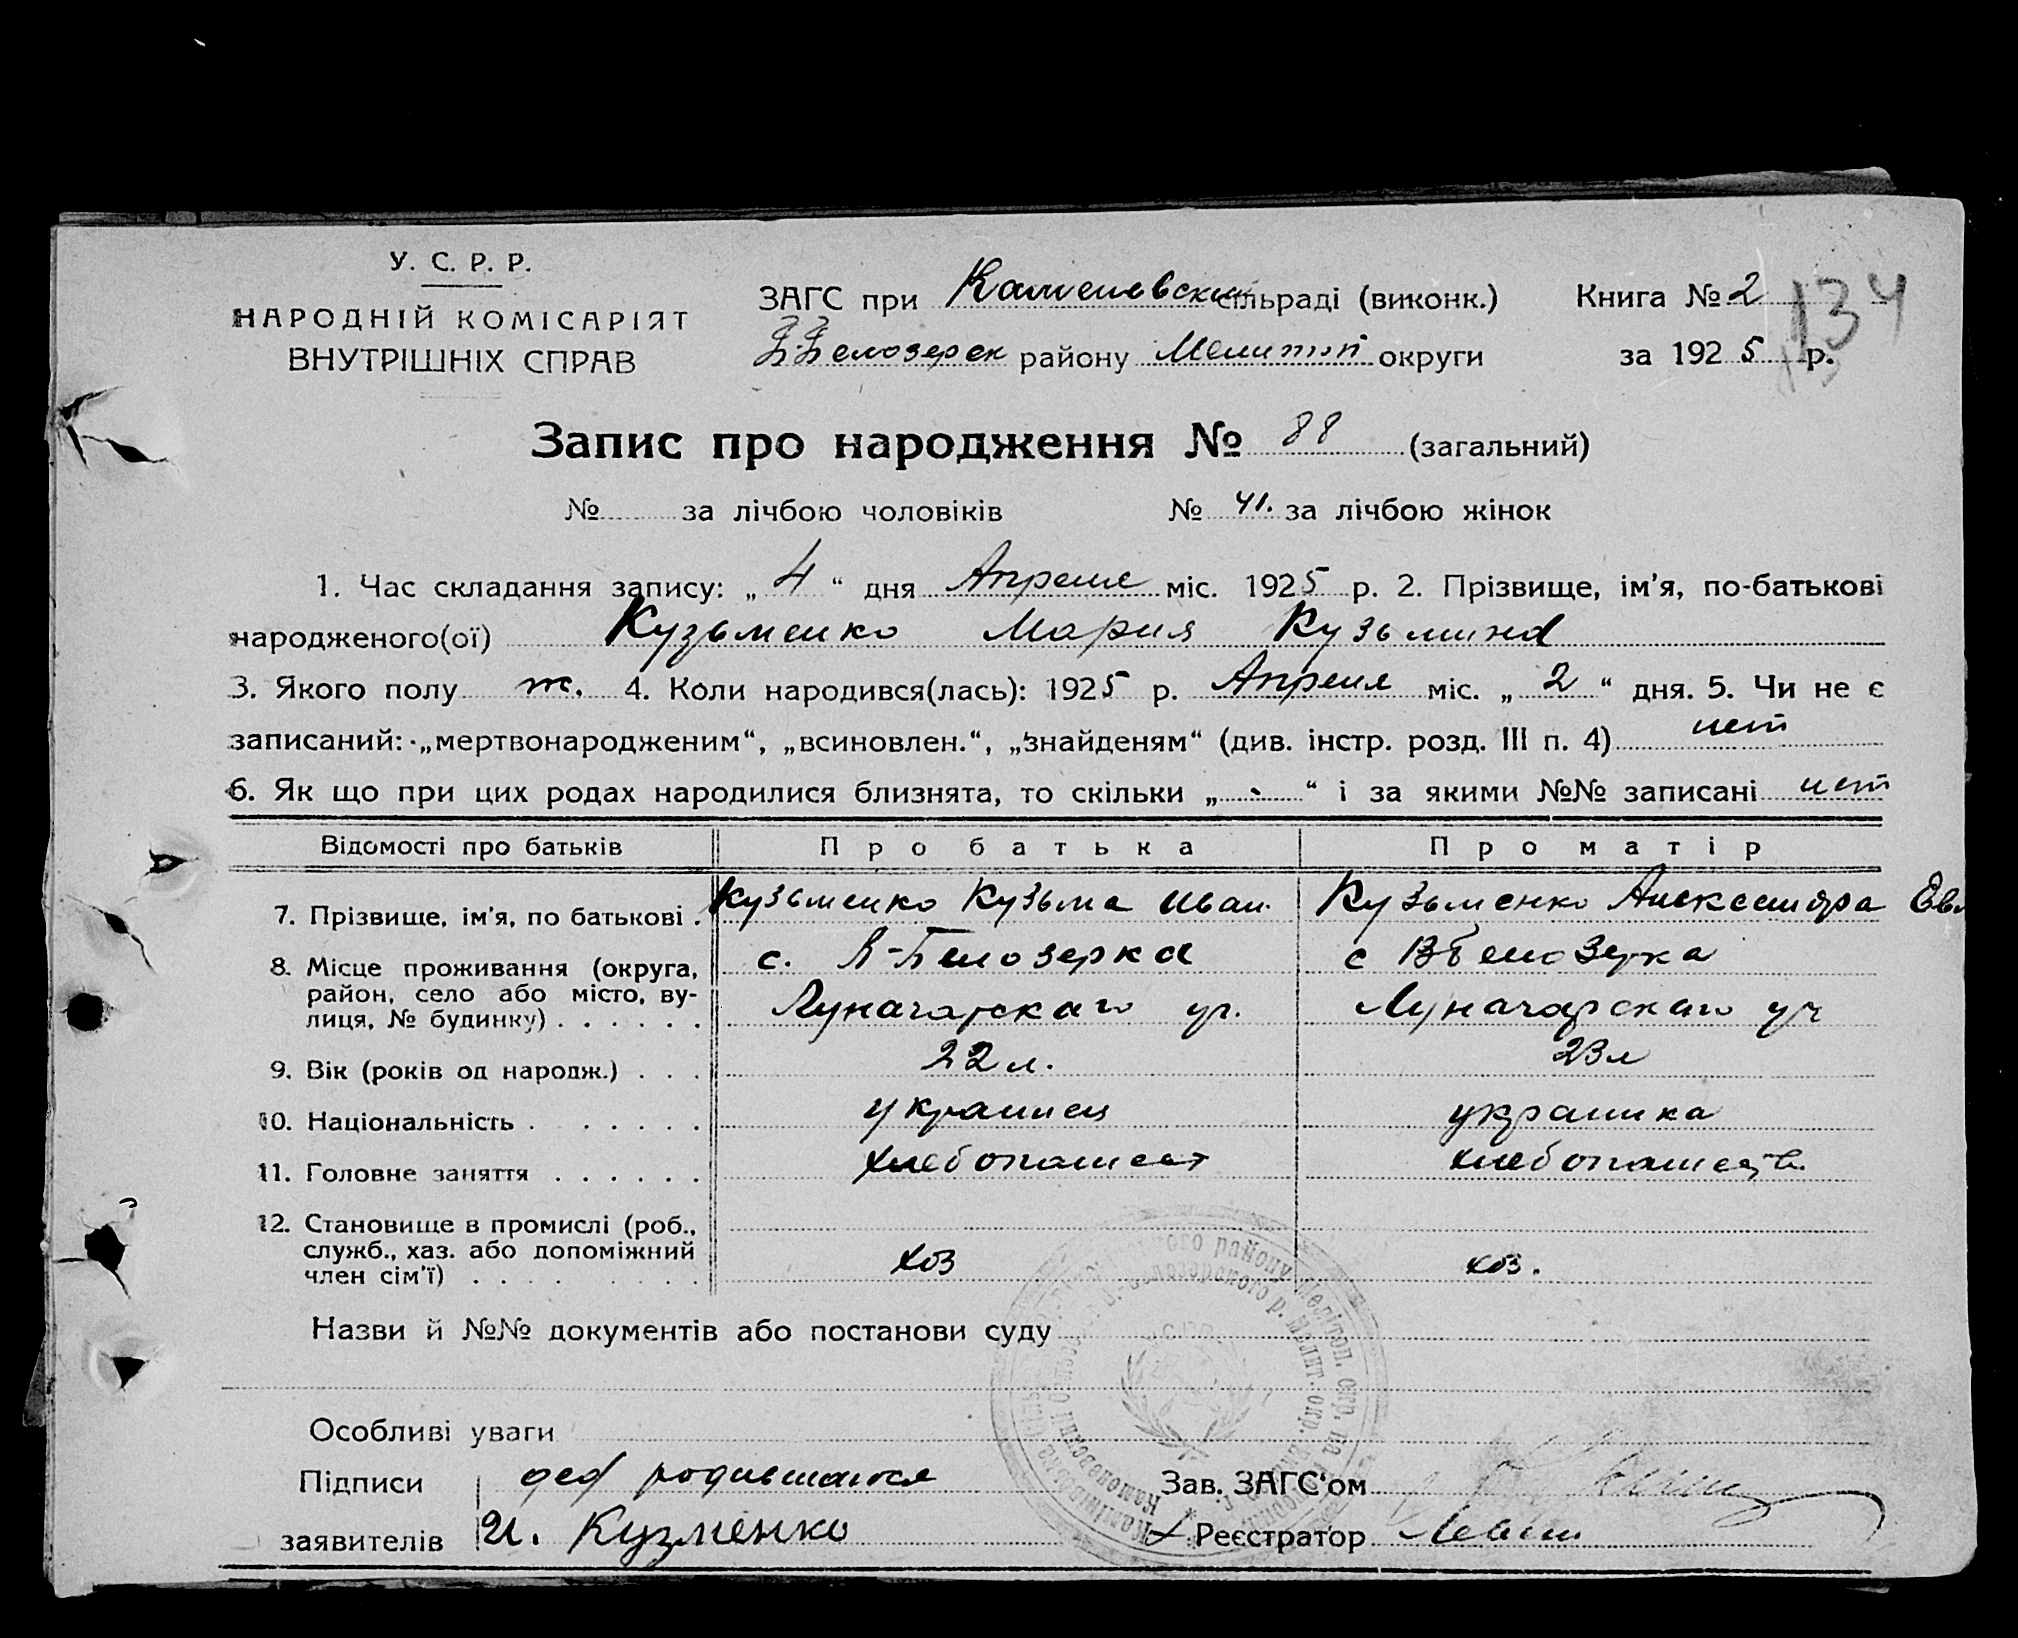 У. С. Р. Р.
НАРОДНІЙ КОМІСАРІЯТ
ВНУТРІШНІХ СПРАВ
ЗАГС при Каменевском сільраді (виконк.)
В. Белозерск району Мелитоп округи
Книга № 2
за 1925 р.
134
Запис про народження № 88 (загальний)
№ за лічбою чоловіків № 41. за лічбою жінок
1. Час складання запису: „ 4 “ дня Апреля міс. 1925 р. 2. Прізвище, ім’я, по-батькові
народженого(ої) Кузьменко Мария Кузьмина
3. Якого полу ж. 4. Коли народився(лась): 1925 р. Апреля міс. „ 2 “ дня. 5. Чи не є
записаний: „мертвонародженим“, „всиновлен.“, „знайденям“ (див. інстр. розд. III п. 4) нет
6. Як що при цих родах народилися близнята, то скільки „ - “ і за якими №№ записані нет
Відомості про батьків Про батька Про матір
7. Прізвище, ім’я, по батькові . Кузьменко Кузьма Иван. Кузьменко Александра
8. Місце проживання (округа, с. В-Белозерка с ВБелозерка
район, село або місто, ву-
лиця, № будинку) . . . . . . Луначарскаго ул. Луначарскаго уч
9. Вік (років од народж.) . . . 22 л. 23 л
10. Національність . . . . . . . украинец украинка
11. Головне заняття . . . . . . хлебопашест хлебопашеств.
12. Становище в промислі (роб.,
служб., хаз. або допоміжний хоз хоз.
член сім’ї) . . . . . . . .
Назви й №№ документів або постанови суду
Особливі уваги
Підписи дед родившагося Зав. ЗАГС‘ом
заявителів И. Кузменко Реєстратор